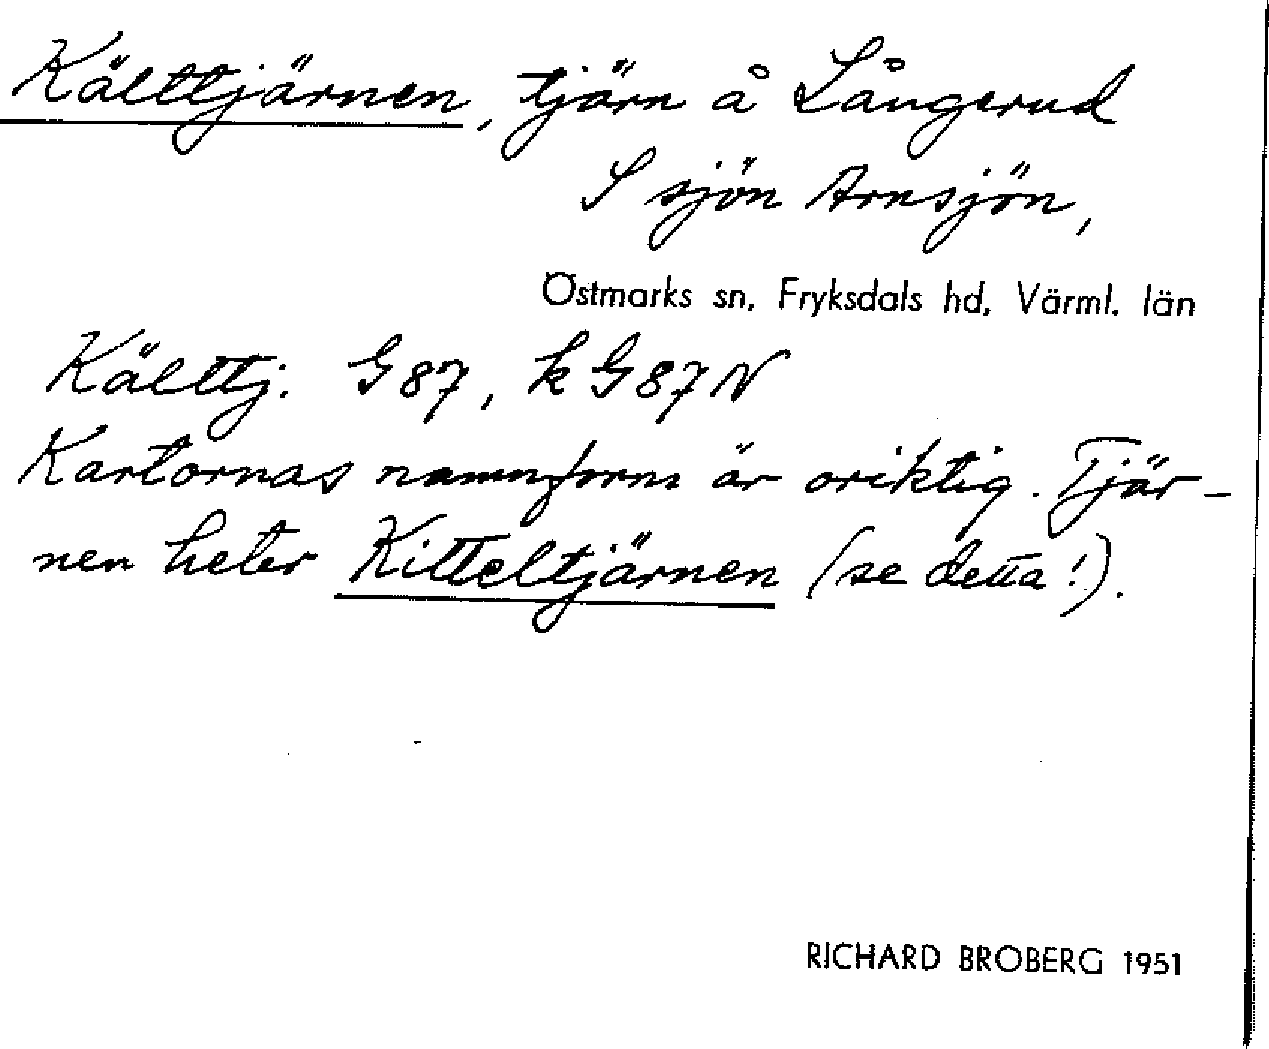 Kälttjärnen, tjärn å Långerud
S sjön Arnsjön,
Östmarks sn, Fryksdals hd, Värml. län
Kälttj. G87, k G87N
Kartornas namnform är oriktig. Tjär-
nen heter Kitteltjärnen (se detta!).
RICHARD BROBERG 1951